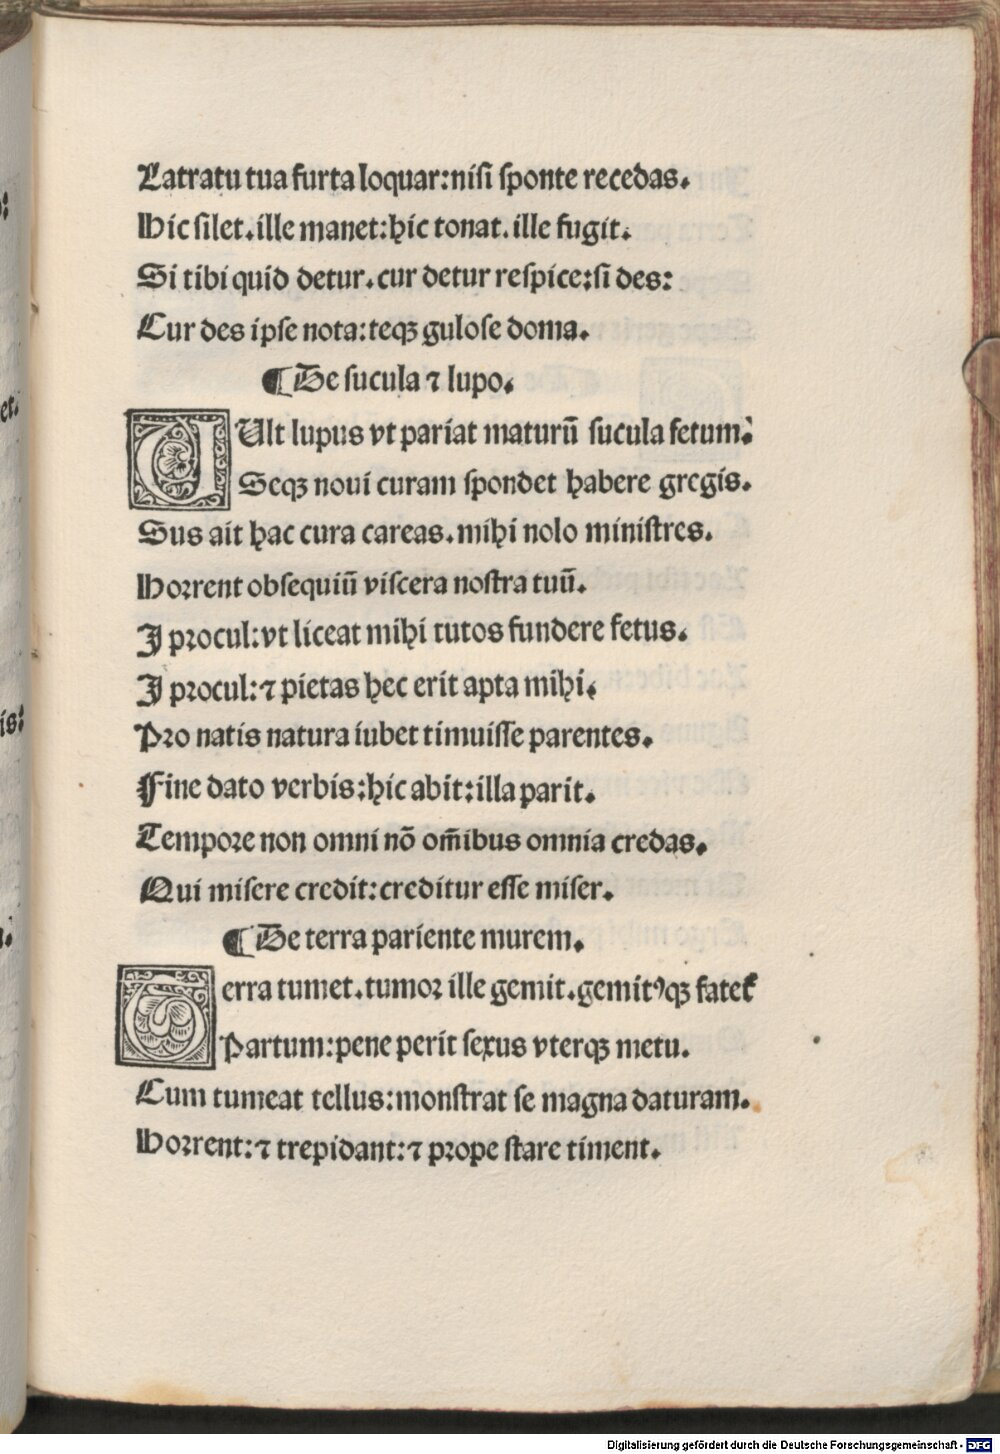 Latratu tua furta loquar:nisi sponte recedas.
Hic silet.ille manet:hic tonat.ille fugit.
Si tibi quid detur.cur detur respice:si des:
Cur des ipse nota:teqꝫ gulose doma.
¶De sucula ⁊ lupo.
VUlt lupus vt pariat maturū sucula fetum:
Seqꝫ noui curam spondet habere gregis.
Sus ait hac cura careas.mihi nolo ministres.
Horrent obsequiū viscera nostra tuū.
I procul:vt liceat mihi tutos fundere fetus.
I procul:⁊ pietas hec erit apta mihi.
Pro natis natura iubet timuisse parentes.
Fine dato verbis:hic abit:illa parit.
Tempore non omni nō om̄ibus omnia credas.
Qui misere credit:creditur esse miser.
¶De terra pariente murem.
Terra tumet.tumor ille gemit.gemitꝰqꝫ fatet᷑
Partum:pene perit sexus vterqꝫ metu.
Cum tumeat tellus:monstrat se magna daturam.
Horrent:⁊ trepidant:⁊ prope stare timent.
Digitalisierung gefördert durch die Deutsche Forschungsgemeinschaft - DFG